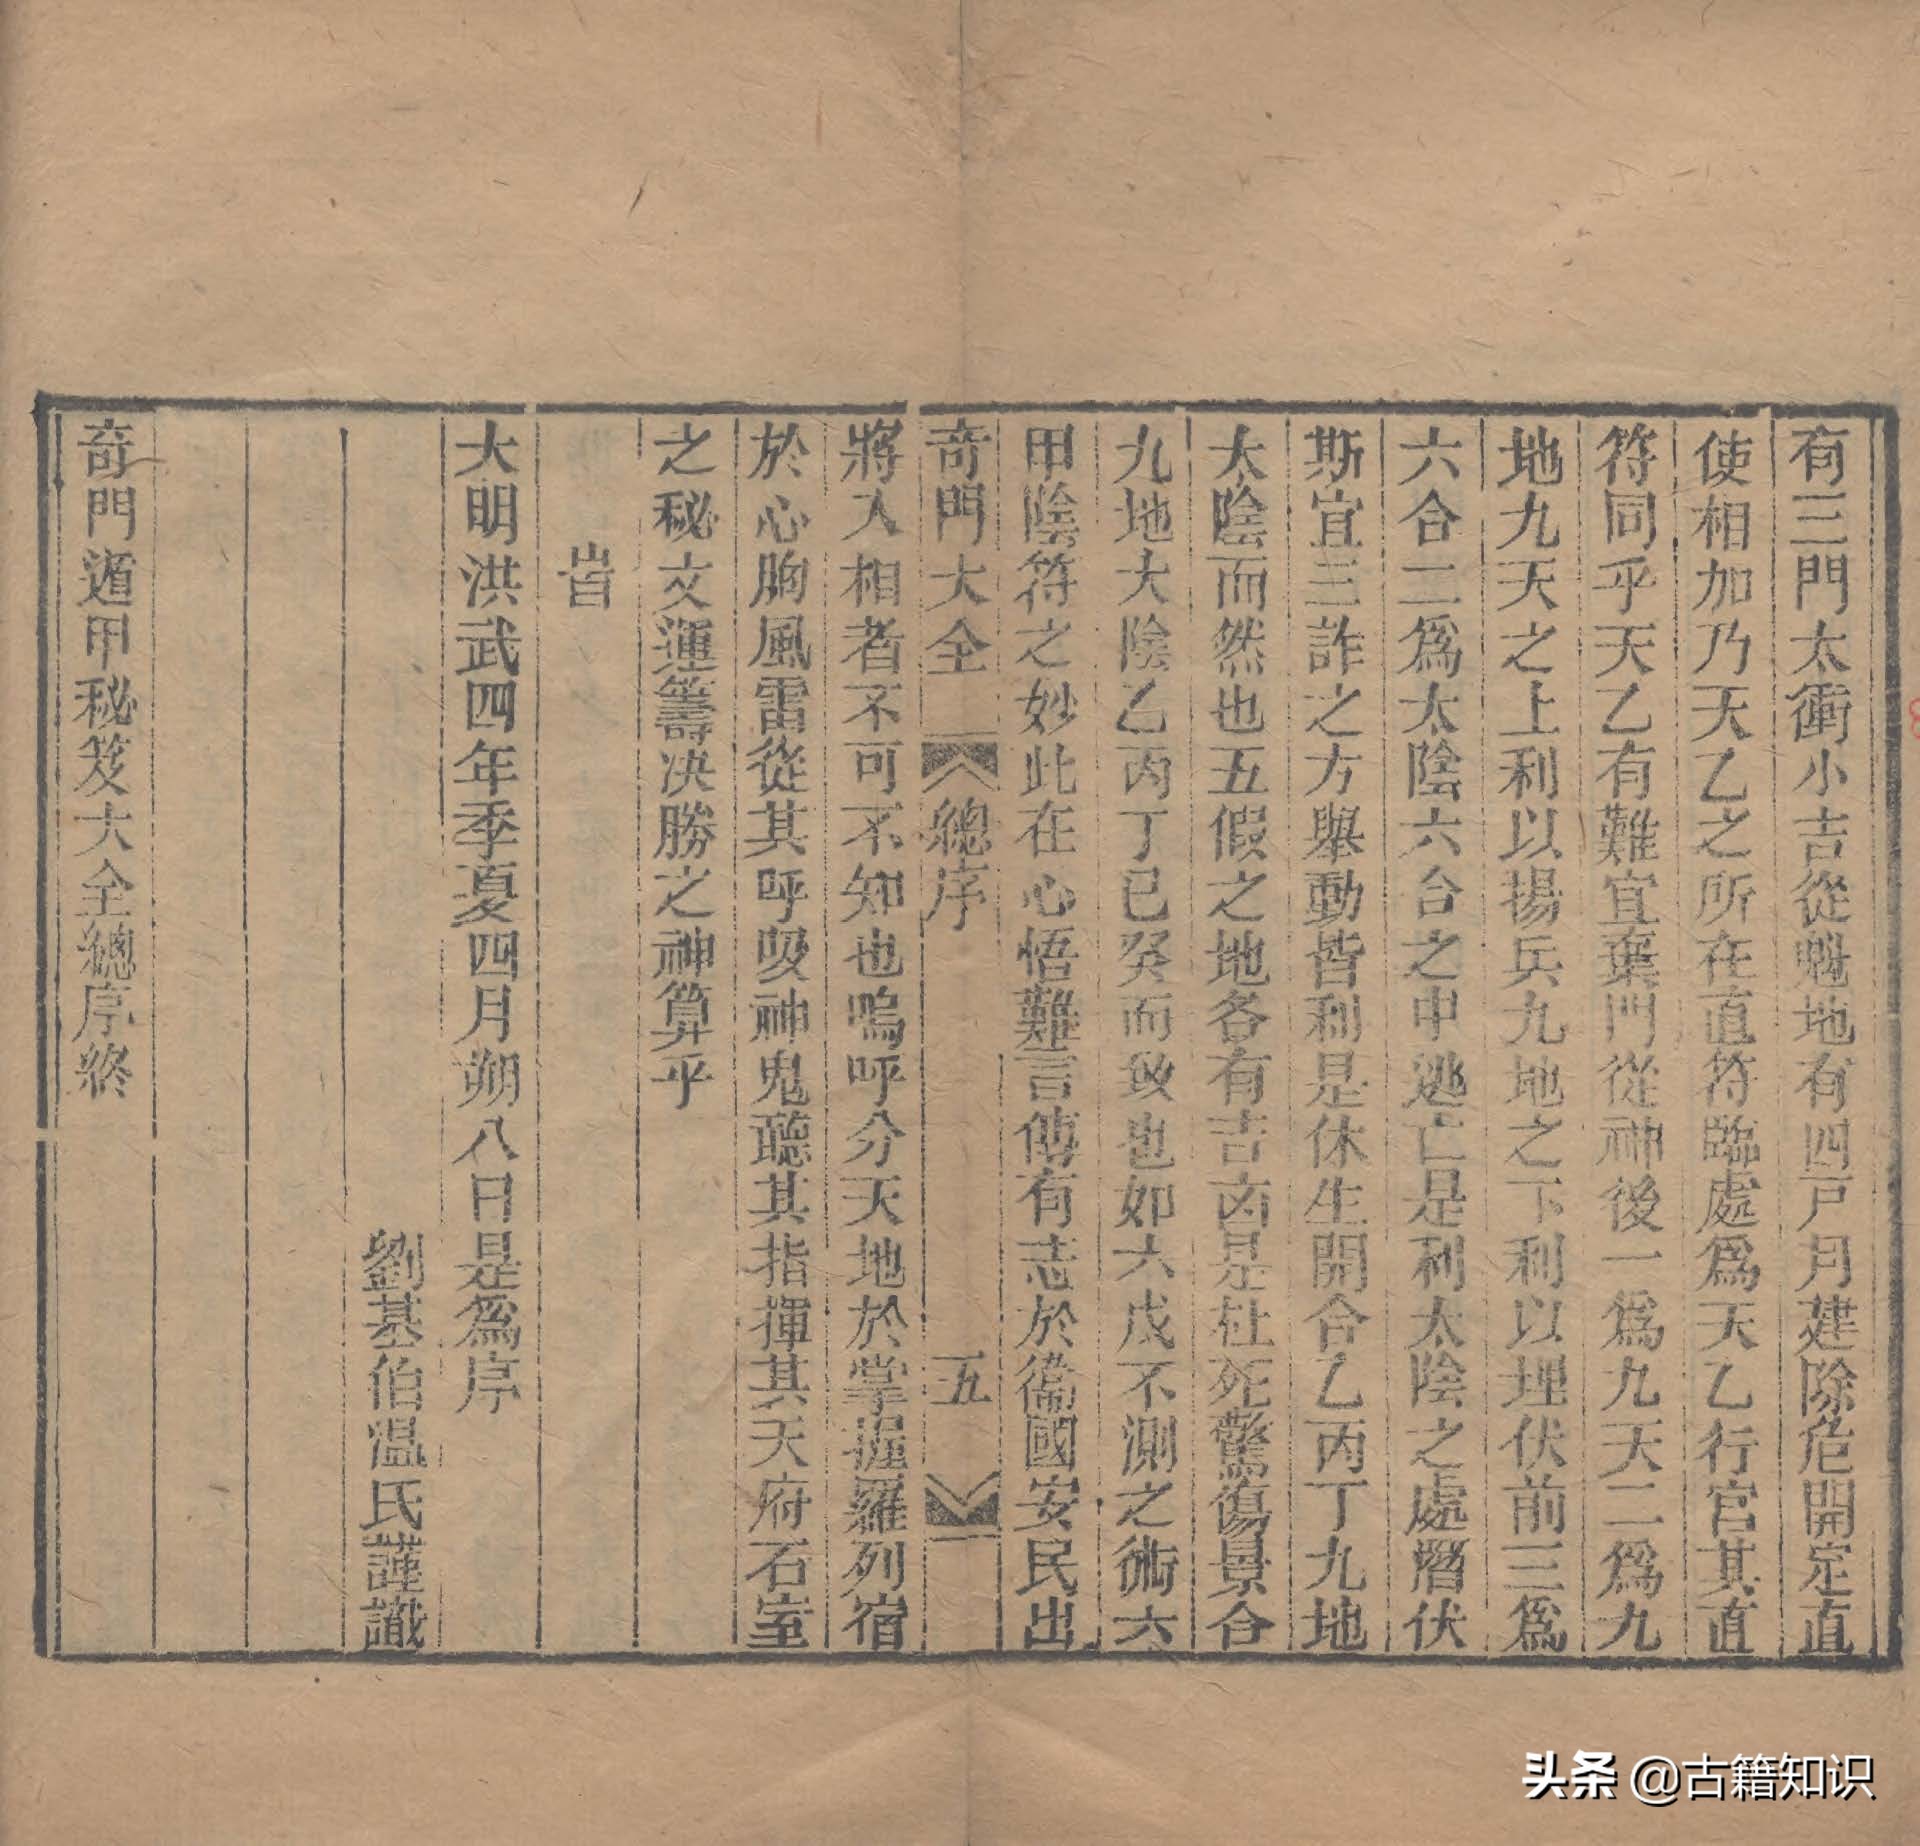 有三門太衝小吉從魁地有四戸月建除危開定直
使相加乃天乙之所在直符臨處爲天乙行宮其直
符同乎天乙有難宜棄門從神後一爲九天二爲九
地九天之上利以揚兵九地之下利以埋伏前三爲
六合二爲太陰六合之中逃亡是利太陰之處潛伏
斯宜三詐之方舉動皆利是休生開合乙丙丁九地
太陰而然也五假之地各有吉凶是杜死驚傷景合
九地大陰乙丙丁已癸而致也如六戊不測之術六
甲陰符之妙此在心悟難言傳有志於衞國安民出
奇門大全
總序
五
將入相者不可不知也嗚呼分天地於掌握羅列宿
於心胸風雷從其呼吸神鬼聽其指揮其天府石室
之秘文運籌决勝之神算乎
旹
大明洪武四年季夏四月朔八日是爲序
劉基伯温氏謹識
奇門遁甲秘笈大全總序終
头条 @古籍知识